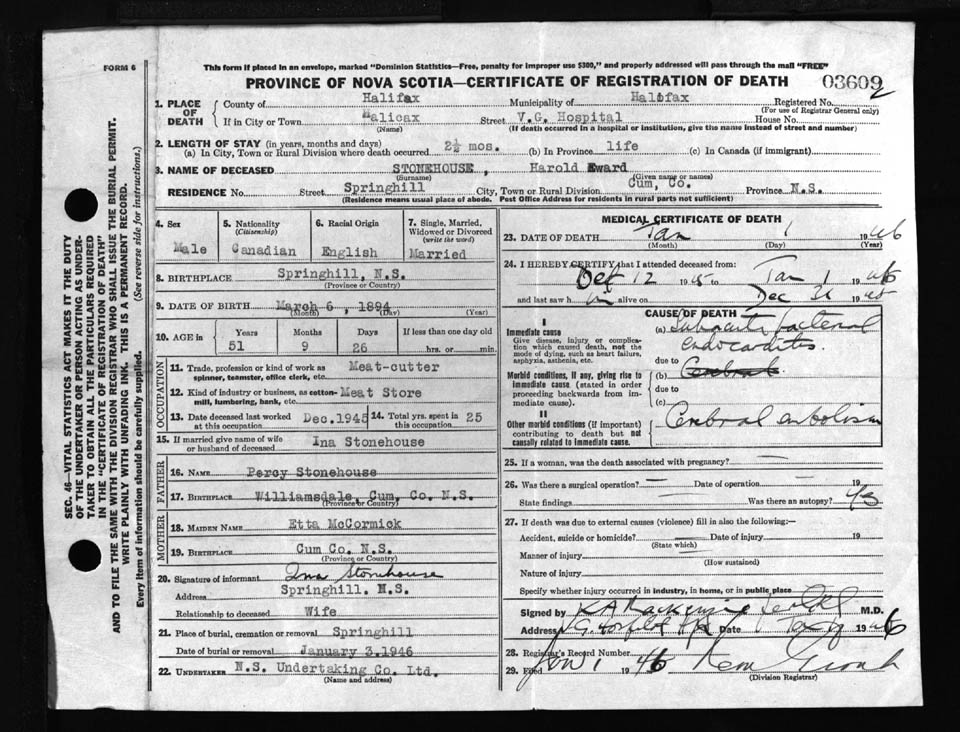 FORM 6
This form if placed in an envelope, marked "Dominion Statistics—Free, penalty for improper use $300," and properly addressed will pass through the mail "FREE"
PROVINCE OF NOVA SCOTIA—CERTIFICATE OF REGISTRATION OF DEATH
03609
2
1. PLACE OF DEATH
County of Halifax Municipality of Halofax Registered No.
(For use of Registrar General only)
If in City or Town Malicax Street V.G. Hospital House No.
(Name) (If death occurred in a hospital or institution, give the name instead of street and number)
2. LENGTH OF STAY (in years, months and days)
(a) In City, Town or Rural Division where death occurred 2½ mos. (b) In Province life (c) In Canada (if immigrant)
3. NAME OF DECEASED STONEHOUSE, Harold Eward
(Surname) (Given name or names)
RESIDENCE No. Street Springhill City, Town or Rural Division Cum, Co. Province N.S.
(Residence means usual place of abode. Post Office Address for residents in rural parts not sufficient)
4. Sex
Male
5. Nationality
(Citizenship)
Canadian
6. Racial Origin
English
7. Single, Married,
Widowed or Divorced
(write the word)
Married
8. BIRTHPLACE Springhill, N.S.
(Province or Country)
9. DATE OF BIRTH March 6, 1894
(Month) (Day) (Year)
10. AGE in
Years Months Days If less than one day old
51 9 26 hrs. or min.
OCCUPATION
11. Trade, profession or kind of work as
spinner, teamster, office clerk, etc. Meat-cutter
12. Kind of industry or business, as cotton-
mill, lumbering, bank, etc. Meat Store
13. Date deceased last worked
at this occupation Dec.1945
14. Total yrs. spent in
this occupation 25
15. If married give name of wife
or husband of deceased Ina Stonehouse
FATHER
16. NAME Percy Stonehouse
17. BIRTHPLACE Williamsdale, Cum, Co. N.S.
(Province or Country)
MOTHER
18. MAIDEN NAME Etta McCormick
19. BIRTHPLACE Cum Co. N.S.
(Province or Country)
20. Signature of informant Ina Stonehouse
Address Springhill. N.S.
Relationship to deceased Wife
21. Place of burial, cremation or removal Springhill
Date of burial or removal January 3.1946
22. UNDERTAKER N.S. Undertaking Co. Ltd.
(Name and address)
MEDICAL CERTIFICATE OF DEATH
23. DATE OF DEATH Jan 1 1946
(Month) (Day) (Year)
24. I HEREBY CERTIFY that I attended deceased from:
Oct 12 1945 to Jan 1 1946
and last saw him alive on Dec 31 1945
CAUSE OF DEATH
I
Immediate cause
Give disease, injury or complica-
tion which caused death, not the
mode of dying, such as heart failure,
asphyxia, asthenia, etc.
(a) Subacute bacterial
endocarditis
due to
Morbid conditions, if any, giving rise to
immediate cause (stated in order
proceeding backwards from im-
mediate cause).
(b) Cerebral
due to
(c)
II
Other morbid conditions (if important)
contributing to death but not
causally related to immediate cause.
Cerebral embolism
25. If a woman, was the death associated with pregnancy? —
26. Was there a surgical operation? — Date of operation — 19
State findings Was there an autopsy? Yes
27. If death was due to external causes (violence) fill in also the following:—
Accident, suicide or homicide? Date of injury 19
(State which)
Manner of injury
(How sustained)
Nature of injury
Specify whether injury occurred in industry, in home, or in public place
Signed by K A MacKenzie M.D.
Address V G Hospital Hfx Date 1 Jany 1946
28. Registrar's Record Number
29. Filed Jan 1 1946
(Division Registrar)
SEC. 46—VITAL STATISTICS ACT MAKES IT THE DUTY
OF THE UNDERTAKER OR PERSON ACTING AS UNDER-
TAKER TO OBTAIN ALL THE PARTICULARS REQUIRED
IN THE "CERTIFICATE OF REGISTRATION OF DEATH"
AND TO FILE THE SAME WITH THE DIVISION REGISTRAR WHO SHALL ISSUE THE BURIAL PERMIT.
WRITE PLAINLY WITH UNFADING INK. THIS IS A PERMANENT RECORD.
Every item of information should be carefully supplied. (See reverse side for instructions.)